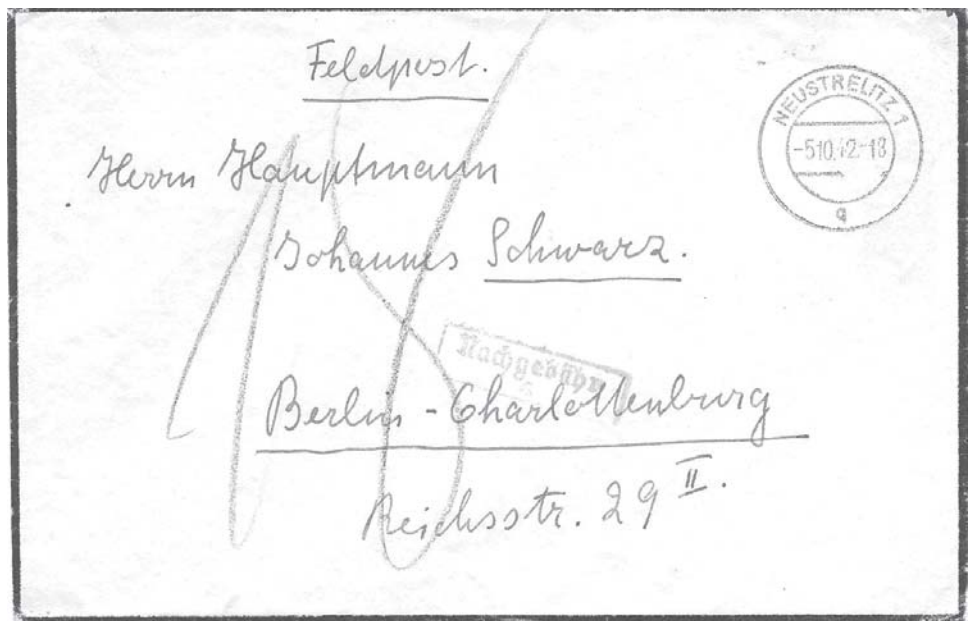 Feldpost.
NEUSTRELITZ 1
-5.10.42.-18
a
Herrn Hauptmann
Johannes Schwarz.
18
Nachgebühr
Berlin-Charlottenburg
Reichsstr. 29 II.